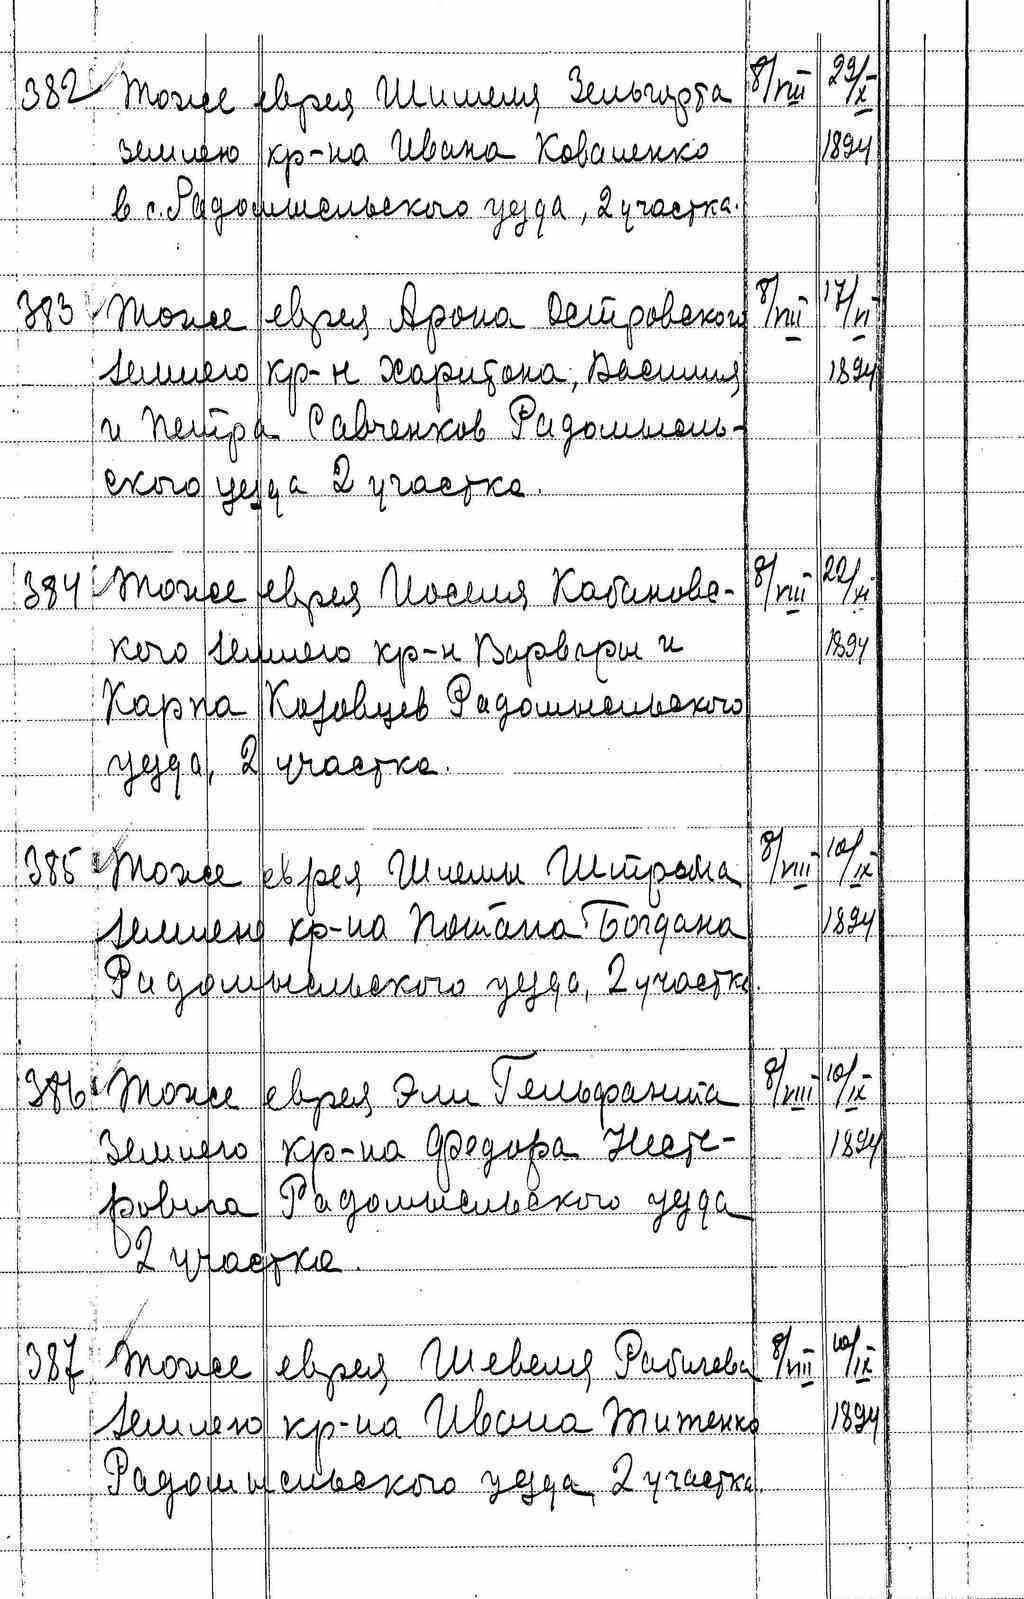 382 Тоже еврея Шимеля Зельцерта 8/VIII 29/X
землею кр-на Ивана Коваленко 1894
в с. Радомысльского уезда, 2 участка.
383 Тоже еврея Арона Островского 8/VIII 17/VI
землею кр-н Харитона, Василия 1894
и Петра Савченков Радомысль-
ского уезда 2 участка.
384 Тоже еврея Иоселя Кабиновс- 8/VIII 22/XI
кого землею кр-н Варвары и 1894
Карпа Козовцев Радомысльского
уезда, 2 участка.
385 Тоже еврея Шлемы Штрома 8/VIII 10/IX
землею кр-на Потапа Богдана 1894
Радомысльского уезда, 2 участка.
386 Тоже еврея Эли Гельфанта 8/VIII 10/IX
землею кр-на Федора Несте- 1894
ровича Радомысльского уезда
2 участка.
387 Тоже еврея Шевеля Рабичева 8/VIII 10/IX
землею кр-на Ивана Титенко 1894
Радомысльского уезда 2 участка.